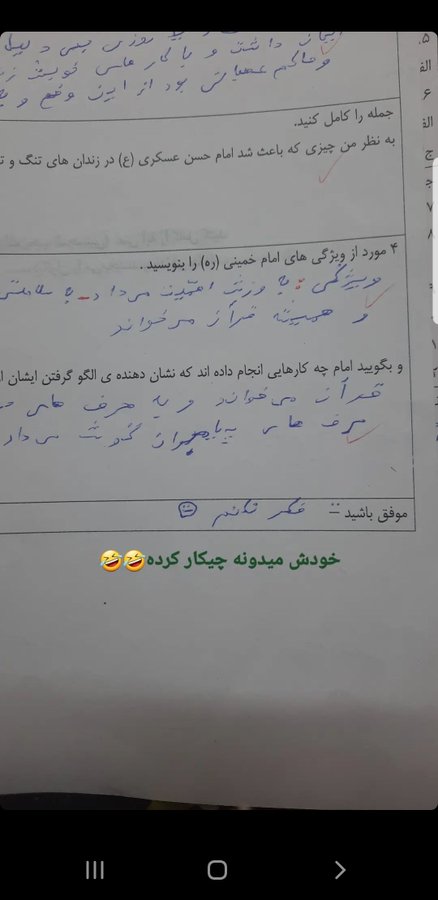 ایمان داشت و با کار های خویش
و حاکم عصبانی بود از این وضع و
۵.
الف
۶
الف
ج
۷
۸
جمله را کامل کنید.
به نظر من چیزی که باعث شد امام حسن عسکری (ع) در زندان های تنگ و
۴ مورد از ویژگی های امام خمینی (ره) را بنویسید .
ویژگی : به ورزش اهمیت میداد - به سلامتی
و همیشه قرآن میخواند
و بگویید امام چه کارهایی انجام داده اند که نشان دهنده ی الگو گرفتن ایشان
قرآن میخواند و به حرف های
حرف های پیامبران گوش میداد
موفق باشید :: فکر نکنم ☹
خودش میدونه چیکار کرده🤣🤣